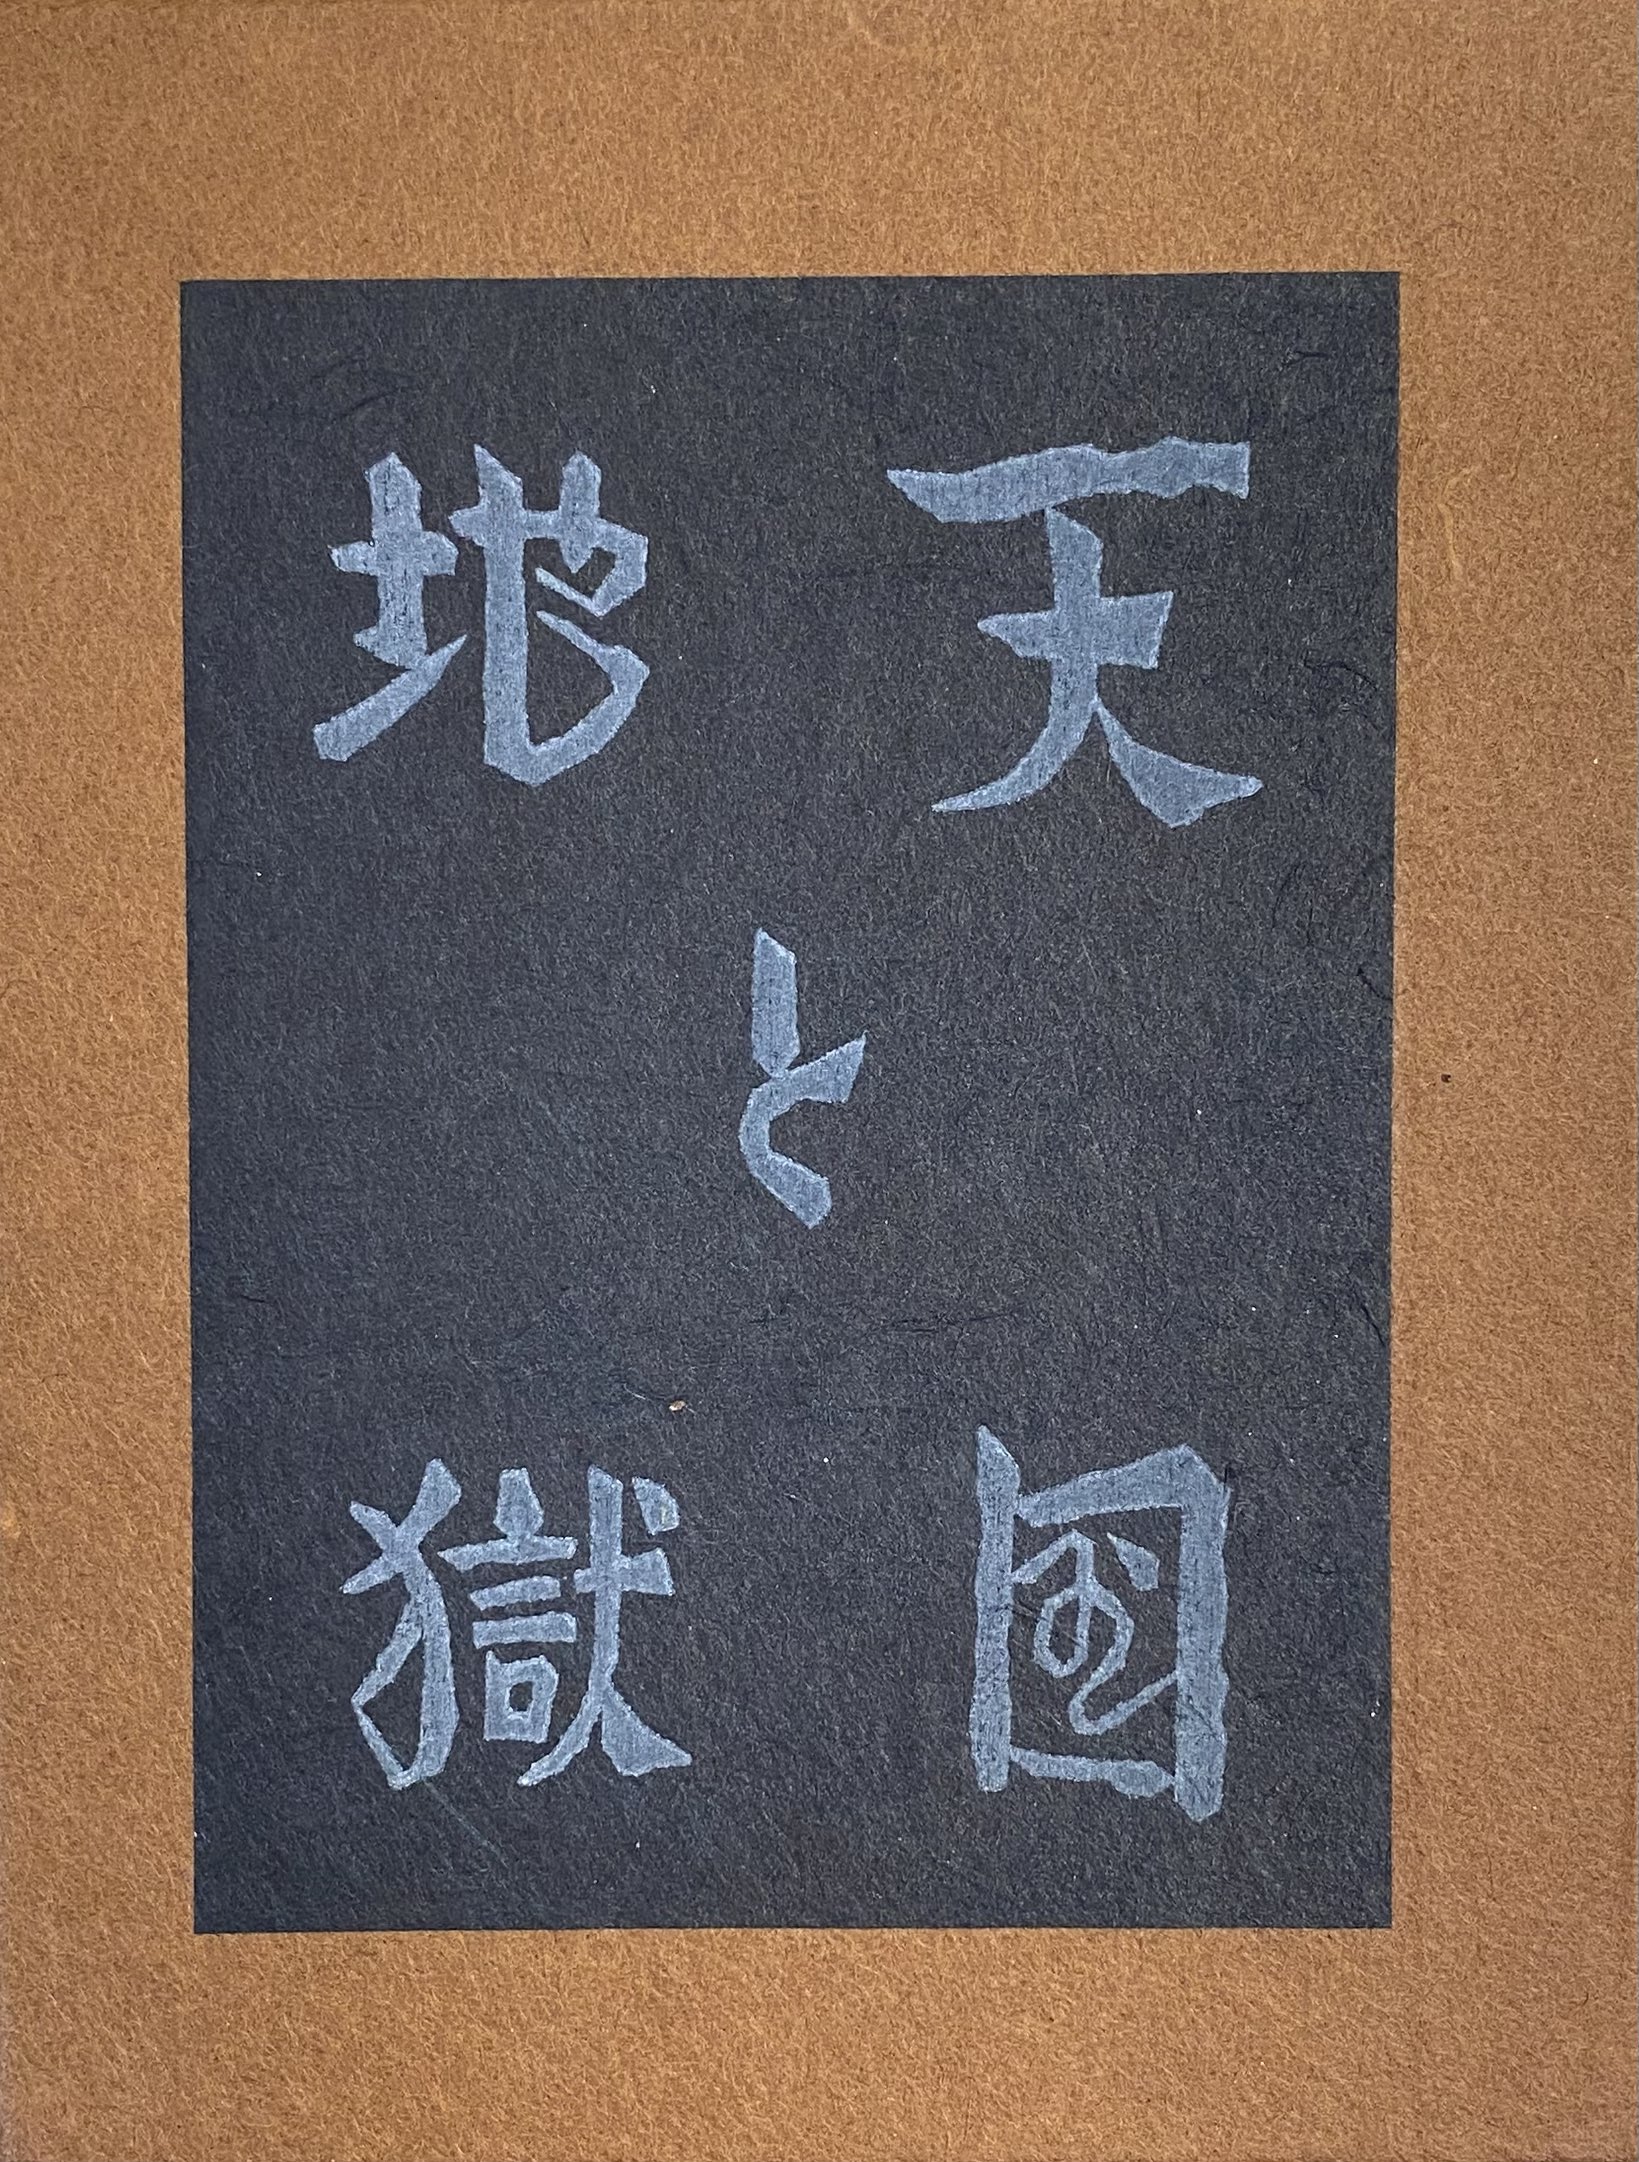 天國
と
地獄